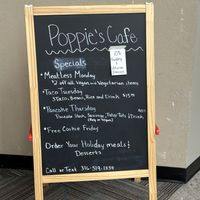 Poppie's Cafe
Specials
• Meatless Monday
$2 off all Vegan + Vegetarian items
• Taco Tuesday
3 Tacos, Beans, Rice and Drink $15.00
• Pancake Thursday
Pancake Stack, Sausage, Tater Tots & Drink
(Reg or Vegan)
• Free Cookie Friday
Order Your Holiday meals &
Desserts
Call or Text